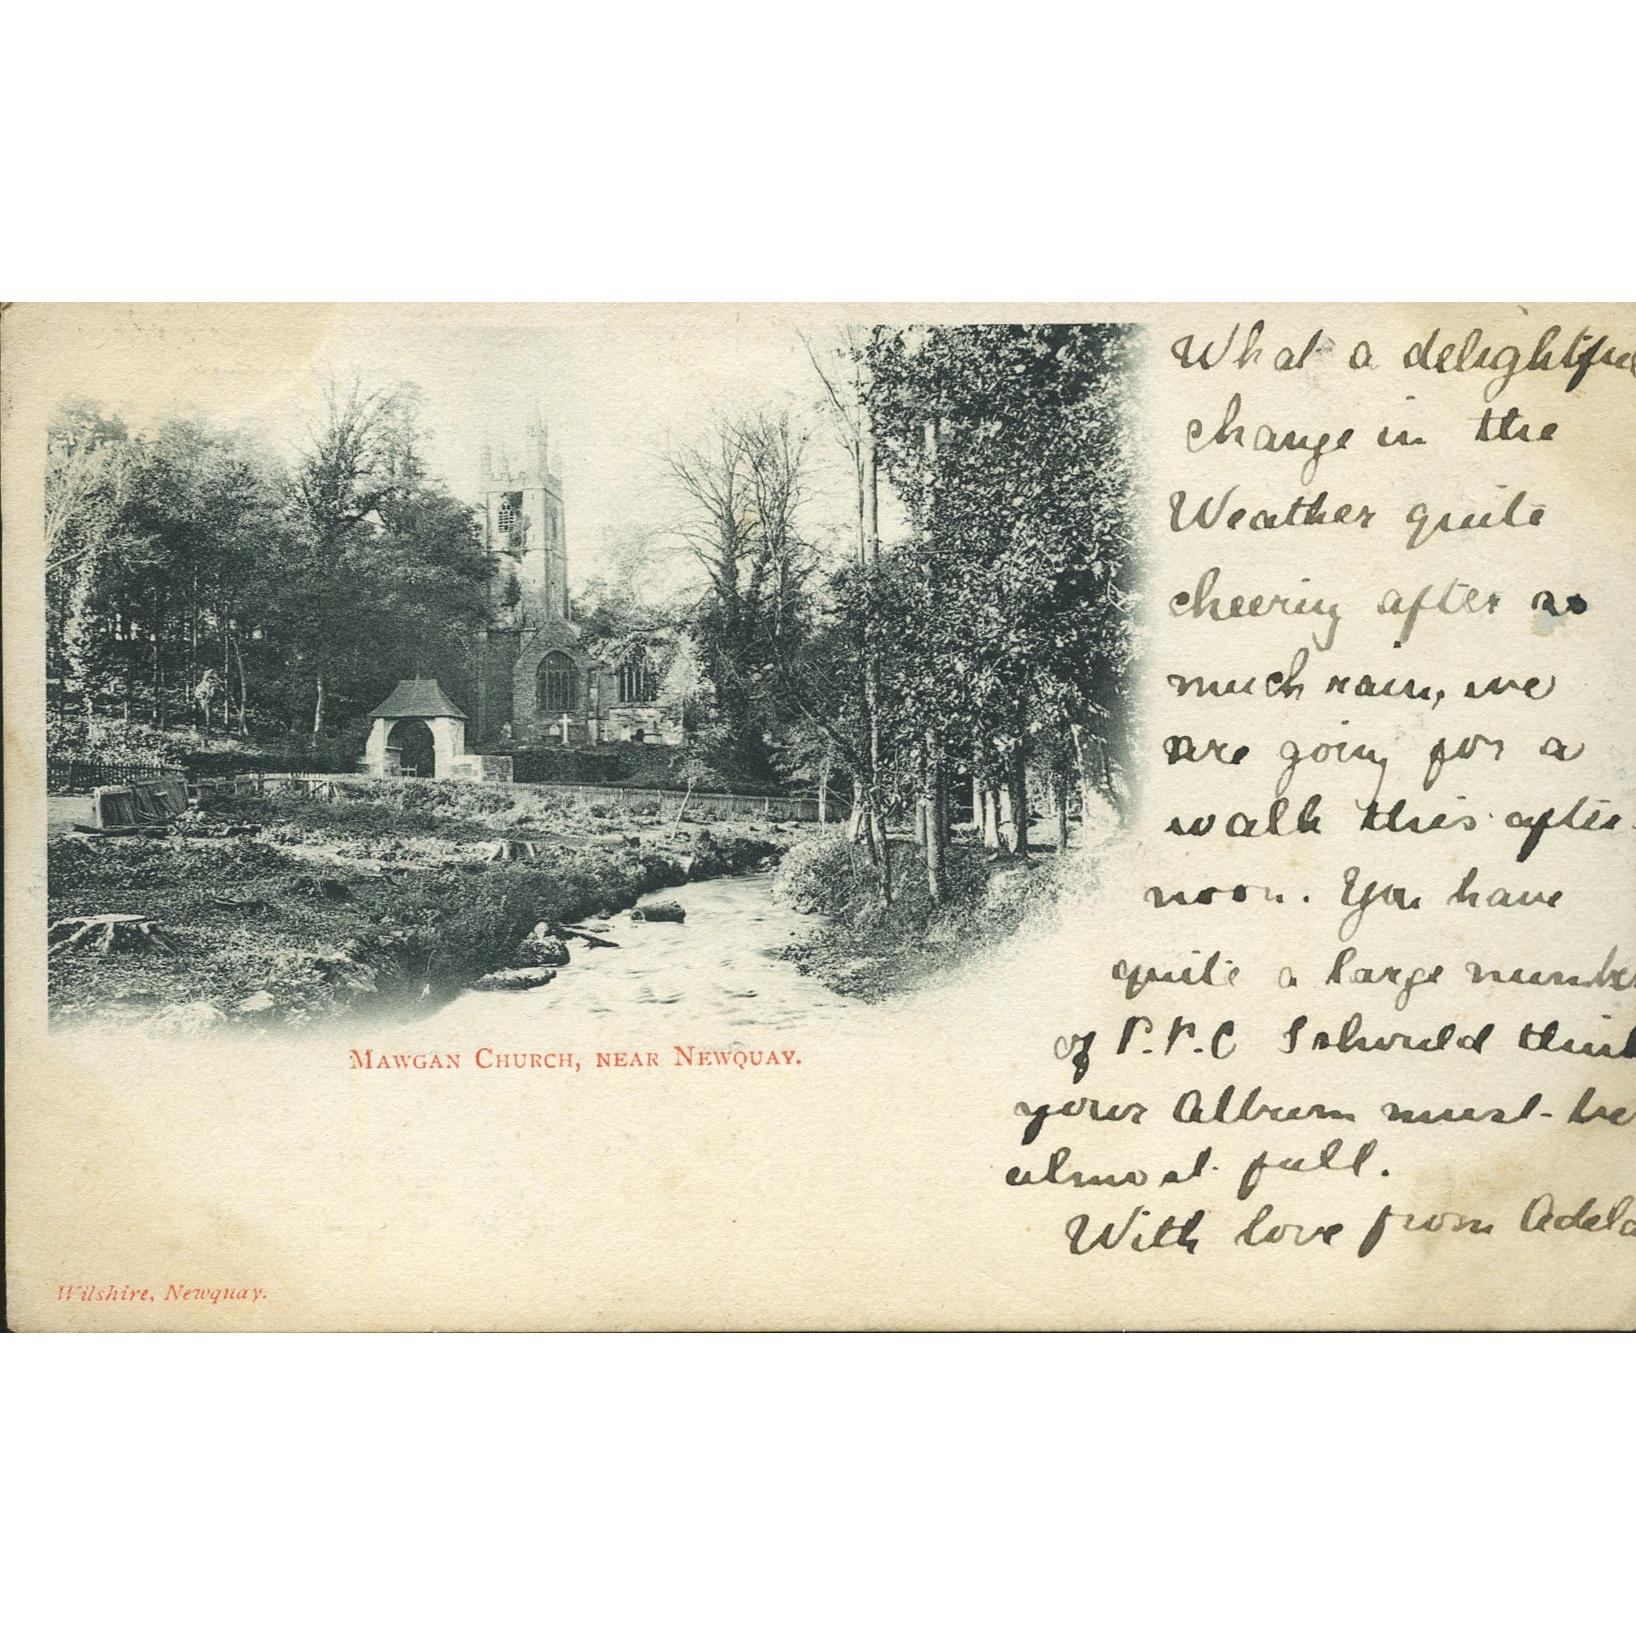 What a delightful
change in the
Weather quite
cheering after so
much rain, we
are going for a
walk this after-
noon. You have
quite a large number
of P.P.C I should think
your Album must be
almost full.
With love from Adela
MAWGAN CHURCH, NEAR NEWQUAY.
Wilshire, Newquay.